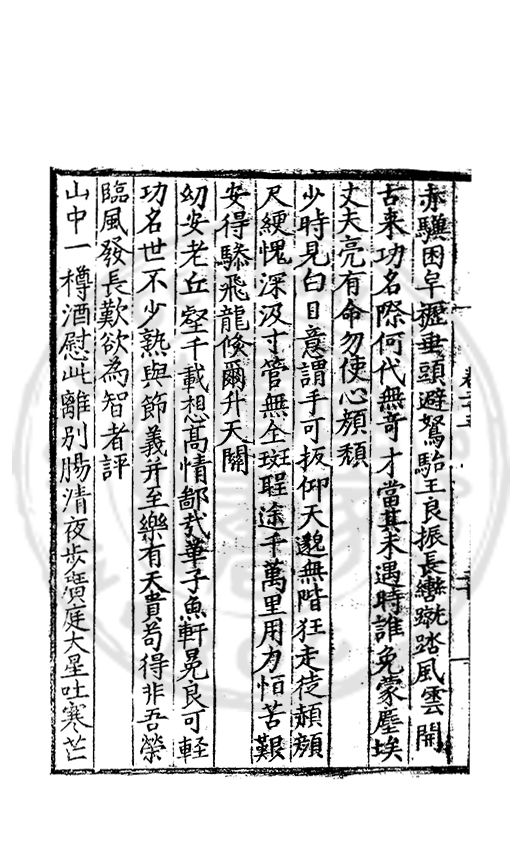 赤驥困早櫪垂頭避駑駘王良振長轡蹴踏風雲開
古来功名際何代無竒才當其未遇時誰免蒙塵埃
丈夫亮有命勿使心顔頽
少時見白日意謂手可扳仰天邈無階狂走徒赬顔
尺綆愧深汲寸管無全斑聖途千萬里用力怕苦艱
安得驂飛龍倐爾升天關
幼安老丘壑千載想髙情鄙哉華子魚軒冕良可軽
功名世不少熟與節義并至樂有天貴苟得非吾榮
臨風發長歎欲為智者評
山中一樽酒慰此離别腸清夜歩廣庭大星吐寒芒